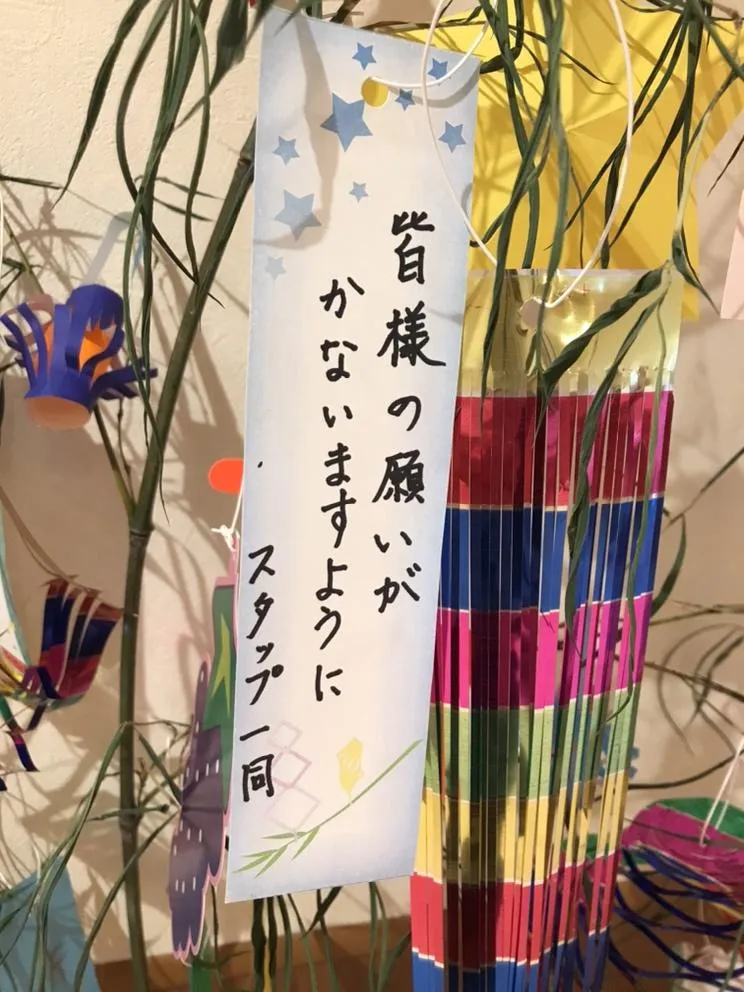 皆様の願いが
かないますように
スタップ一同